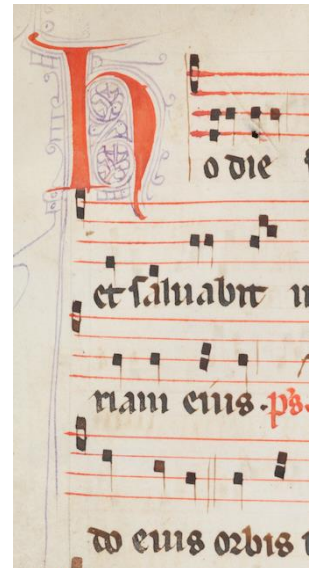 Hodie
et saluabit
riam eius. ps.
do eius orbis